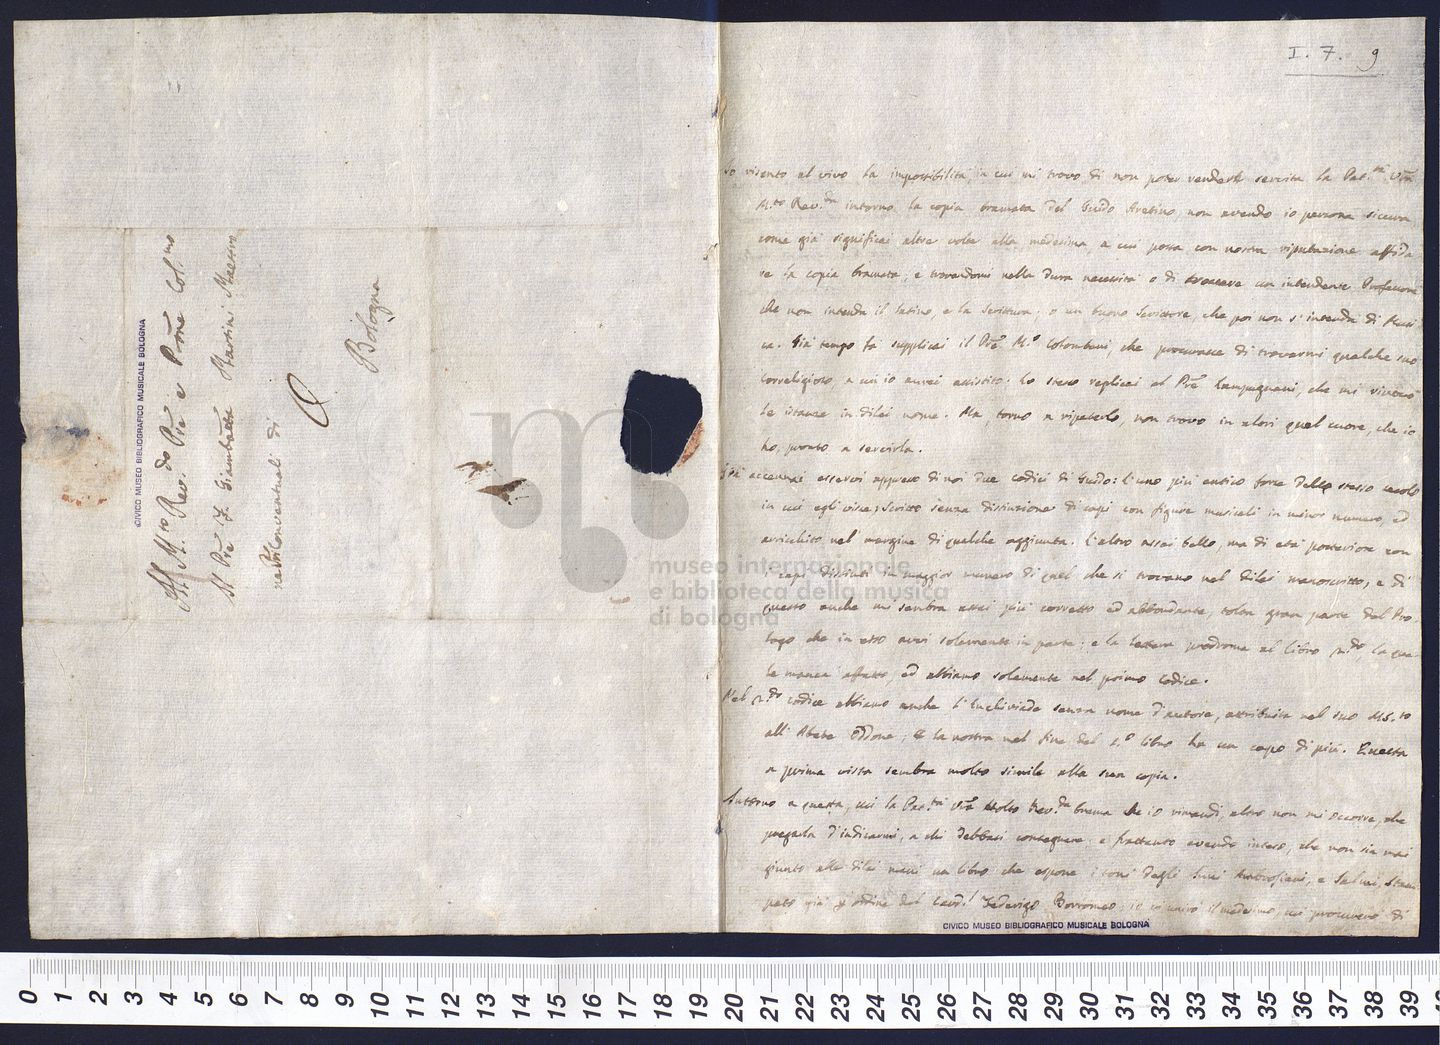 Al M.to Rev.do Pre e Prone Col.mo
Il Pre F. Giambatta Martini Maestro
ne Conventuali di
Bologna
CIVICO MUSEO BIBLIOGRAFICO MUSICALE BOLOGNA
I. 7. 9
Io risento al vivo la impossibilità in cui mi trovo di non poter renderle servita la Pat.tà Vra
M.to Rev.da intorno la copia bramata del Guido Aretino, non avendo io persona sicura
come già significai altre volte alla medesima, a cui possa con nostra riputazione affida
re la copia bramata, e trovandomi nella dura necessità o di trovare un intendente Professore
che non intenda il latino, e la scrittura; o un buono scrittore, che poi non s'intenda di Musi
ca. Già tempo fa supplicai il Pre M.o Colombani, che procurasse di trovarmi qualche suo
correligioso, a cui io avrei assistito: lo stesso replicai al Pre Campagnani, che mi rinovò
le istanze in di lei nome. Ma, torno a ripeterlo, non trovo in altri quel cuore, che io
ho, pronto a servirla.
Già accennai esservi appresso di noi due codici di Guido: l'uno più antico forse dello stesso secolo
in cui egli visse; scritto senza distinzione di capi con figure musicali in minor numero, ed
arricchito nel margine di qualche aggiunta. L'altro assai bello, ma di età posteriore con
i capi distinti in maggior numero di quel che si trovano nel di lei manoscritto, e di
questo anche mi sembra assai più corretto ed abbondante, tolta gran parte del Pro-
logo che in esso avvi solamente in parte; e la lettera prodroma al libro 2.do, la qua-
le manca affatto, ed abbiamo solamente nel primo codice.
Nel 2.do codice abbiamo anche l'Enchiriade senza nome d'autore, attribuita nel suo M.S.to
all'Abate Oddone; e la nostra nel fine del 2.o libro ha un capo di più. Questa
a prima vista sembra molto simile alla sua copia.
Intorno a questa, cui la Pat.tà Vra Molto Rev.da brama che io rimandi, altro non mi occorre, che
pregarla d'indicarmi, a chi debbasi consegnare; e frattanto avendo inteso, che non sia mai
giunto alle di lei mani un libro che espone i toni degli Inni Ambrosiani, e Salmi, stam
pato già per ordine del Card.l Federigo Borromeo, io le invio il medesimo, cui procurerò di
CIVICO MUSEO BIBLIOGRAFICO MUSICALE BOLOGNA
museo internazionale
e biblioteca della musica
di bologna
0 1 2 3 4 5 6 7 8 9 10 11 12 13 14 15 16 17 18 19 20 21 22 23 24 25 26 27 28 29 30 31 32 33 34 35 36 37 38 39